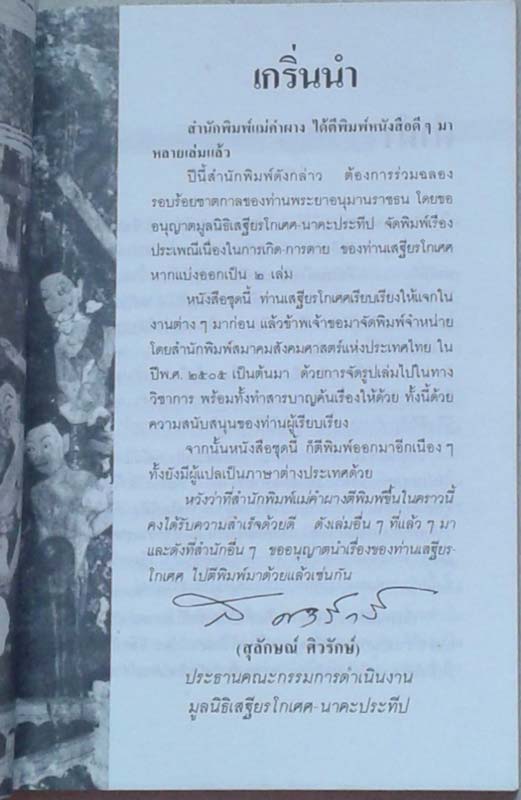 เกริ่นนำ
สำนักพิมพ์แม่คำผาง ได้ตีพิมพ์หนังสือดี ๆ มา
หลายเล่มแล้ว
ปีนี้สำนักพิมพ์ดังกล่าว ต้องการร่วมฉลอง
รอบร้อยชาตกาลของท่านพระยาอนุมานราชธน โดยขอ
อนุญาตมูลนิธิเสฐียรโกเศศ-นาคะประทีป จัดพิมพ์เรื่อง
ประเพณีเนื่องในการเกิด-การตาย ของท่านเสฐียรโกเศศ
หากแบ่งออกเป็น ๒ เล่ม
หนังสือชุดนี้ ท่านเสฐียรโกเศศเรียบเรียงให้แจกใน
งานต่าง ๆ มาก่อน แล้วข้าพเจ้าขอมาจัดพิมพ์จำหน่าย
โดยสำนักพิมพ์สมาคมสังคมศาสตร์แห่งประเทศไทย ใน
ปีพ.ศ. ๒๕๐๕ เป็นต้นมา ด้วยการจัดรูปเล่มไปในทาง
วิชาการ พร้อมทั้งทำสารบาญค้นเรื่องให้ด้วย ทั้งนี้ด้วย
ความสนับสนุนของท่านผู้เรียบเรียง
จากนั้นหนังสือชุดนี้ ก็ตีพิมพ์ออกมาอีกเนือง ๆ
ทั้งยังมีผู้แปลเป็นภาษาต่างประเทศด้วย
หวังว่าที่สำนักพิมพ์แม่คำผางตีพิมพ์ขึ้นในคราวนี้
คงได้รับความสำเร็จด้วยดี ดังเล่มอื่น ๆ ที่แล้ว ๆ มา
และดังที่สำนักอื่น ๆ ขออนุญาตนำเรื่องของท่านเสฐียร-
โกเศศ ไปตีพิมพ์มาด้วยแล้วเช่นกัน
(สุลักษณ์ ศิวรักษ์)
ประธานคณะกรรมการดำเนินงาน
มูลนิธิเสฐียรโกเศศ-นาคะประทีป